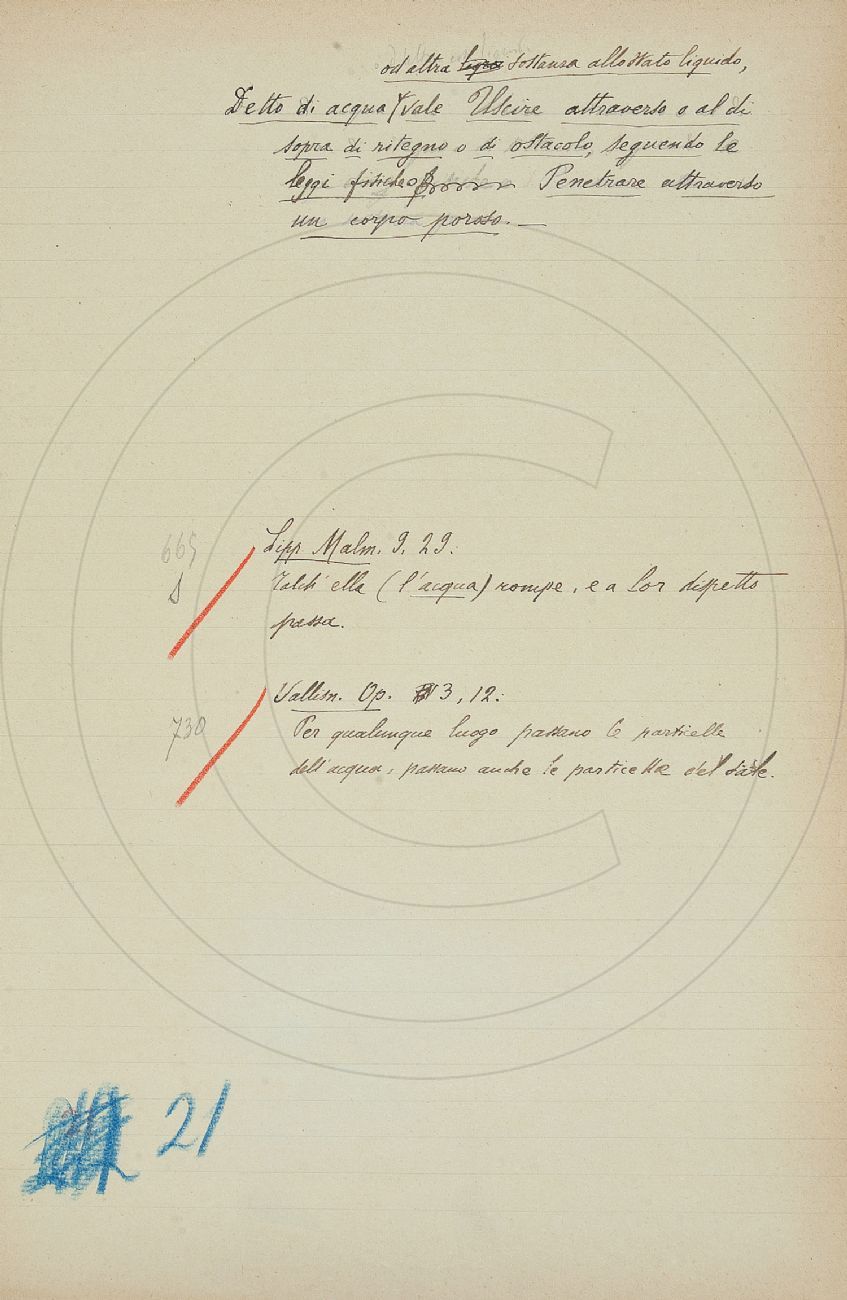 od altra liqui sostanza allo stato liquido,
Detto di acqua vale Uscire attraverso o al di
sopra di ritegno o di ostacolo, seguendo le
leggi fisiche o Penetrare attraverso
un corpo poroso. —
665
Lipp. Malm. 9. 29:
S
Talch' ella (l'acqua) rompe, e a lor dispetto
passa.
Vallisn. Op. 3, 12:
730
Per qualunque luogo passano le particelle
dell'acqua, passano anche le particelle del sale.
21